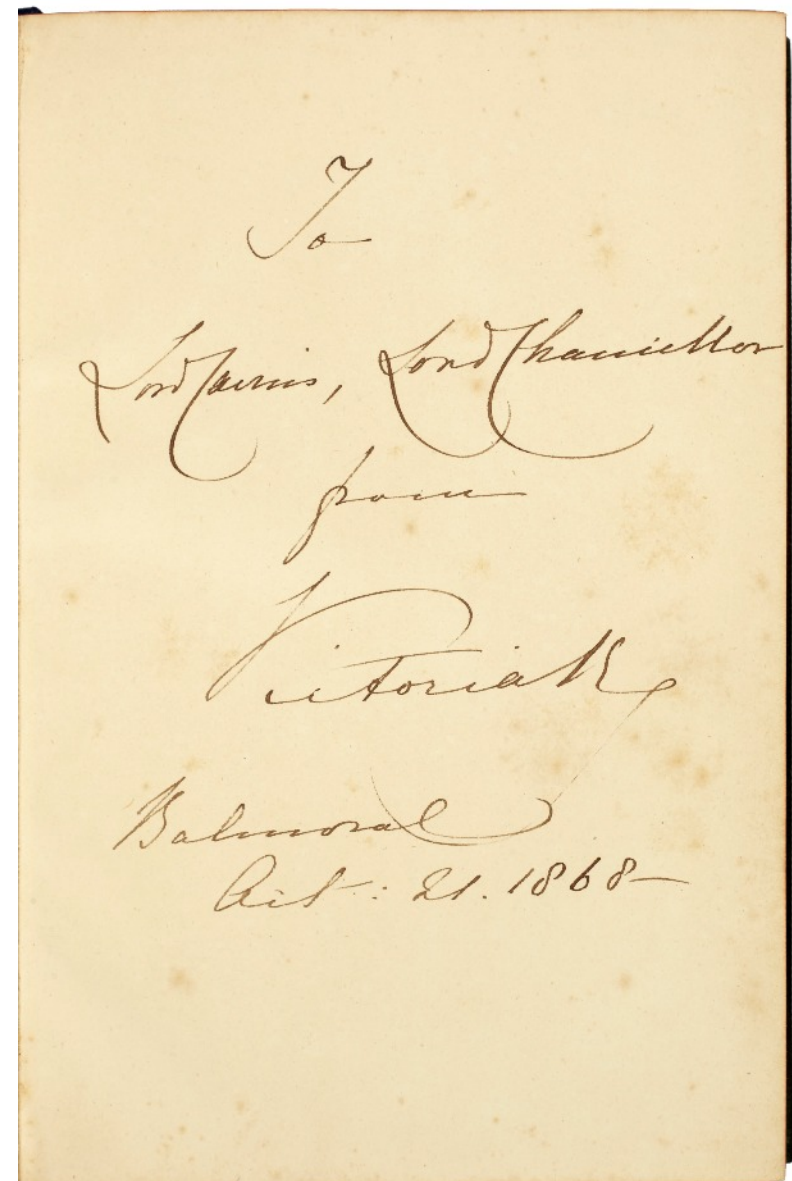 To
Lord Cairns, Lord Chancellor
from
Victoria R
Balmoral
Oct: 21. 1868—